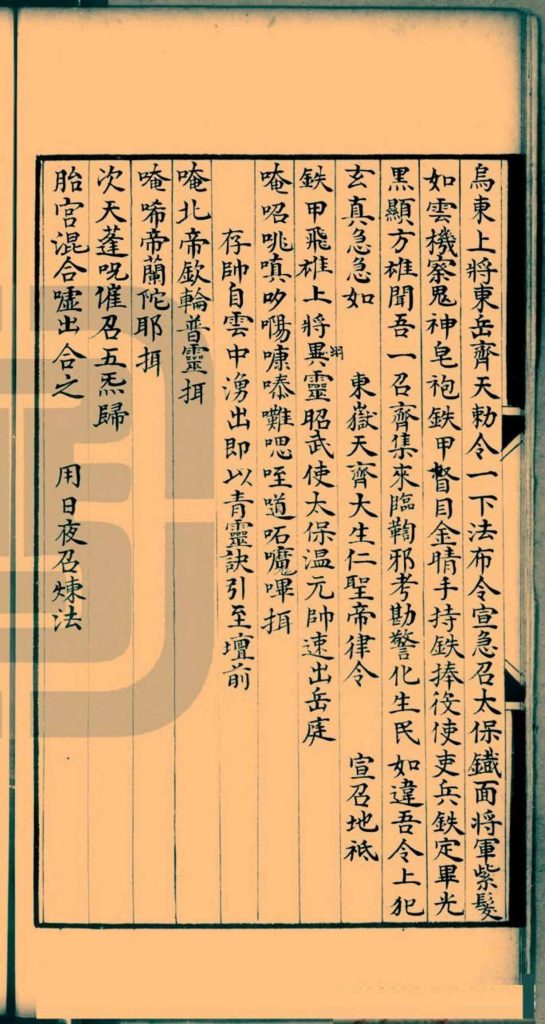 烏東上將東岳齊天勅令一下法布令宣急召太保鐵面將軍紫髮
如雲機察鬼神皂袍鉄甲督目金睛手持鉄捧役使吏兵鉄定畢光
黑顯方雄聞吾一召齊集來臨鞫邪考勘警化生民如違吾令上犯
玄真急急如 東嶽天齊大生仁聖帝律令 宣召地祗
鉄甲飛雄上將異靈昭武使太保温元帥速出岳庭
唵咭咣嗔吵㗿嗛嗪囋嗯咥噵㕷魔嗶揖
存帥自雲中湧出即以青靈訣引至壇前
唵北帝欽輪普靈揖
唵唏帝蘭陀耶揖
次天蓬呪催召五炁歸
胎宮混合噓出合之 用日夜召煉法